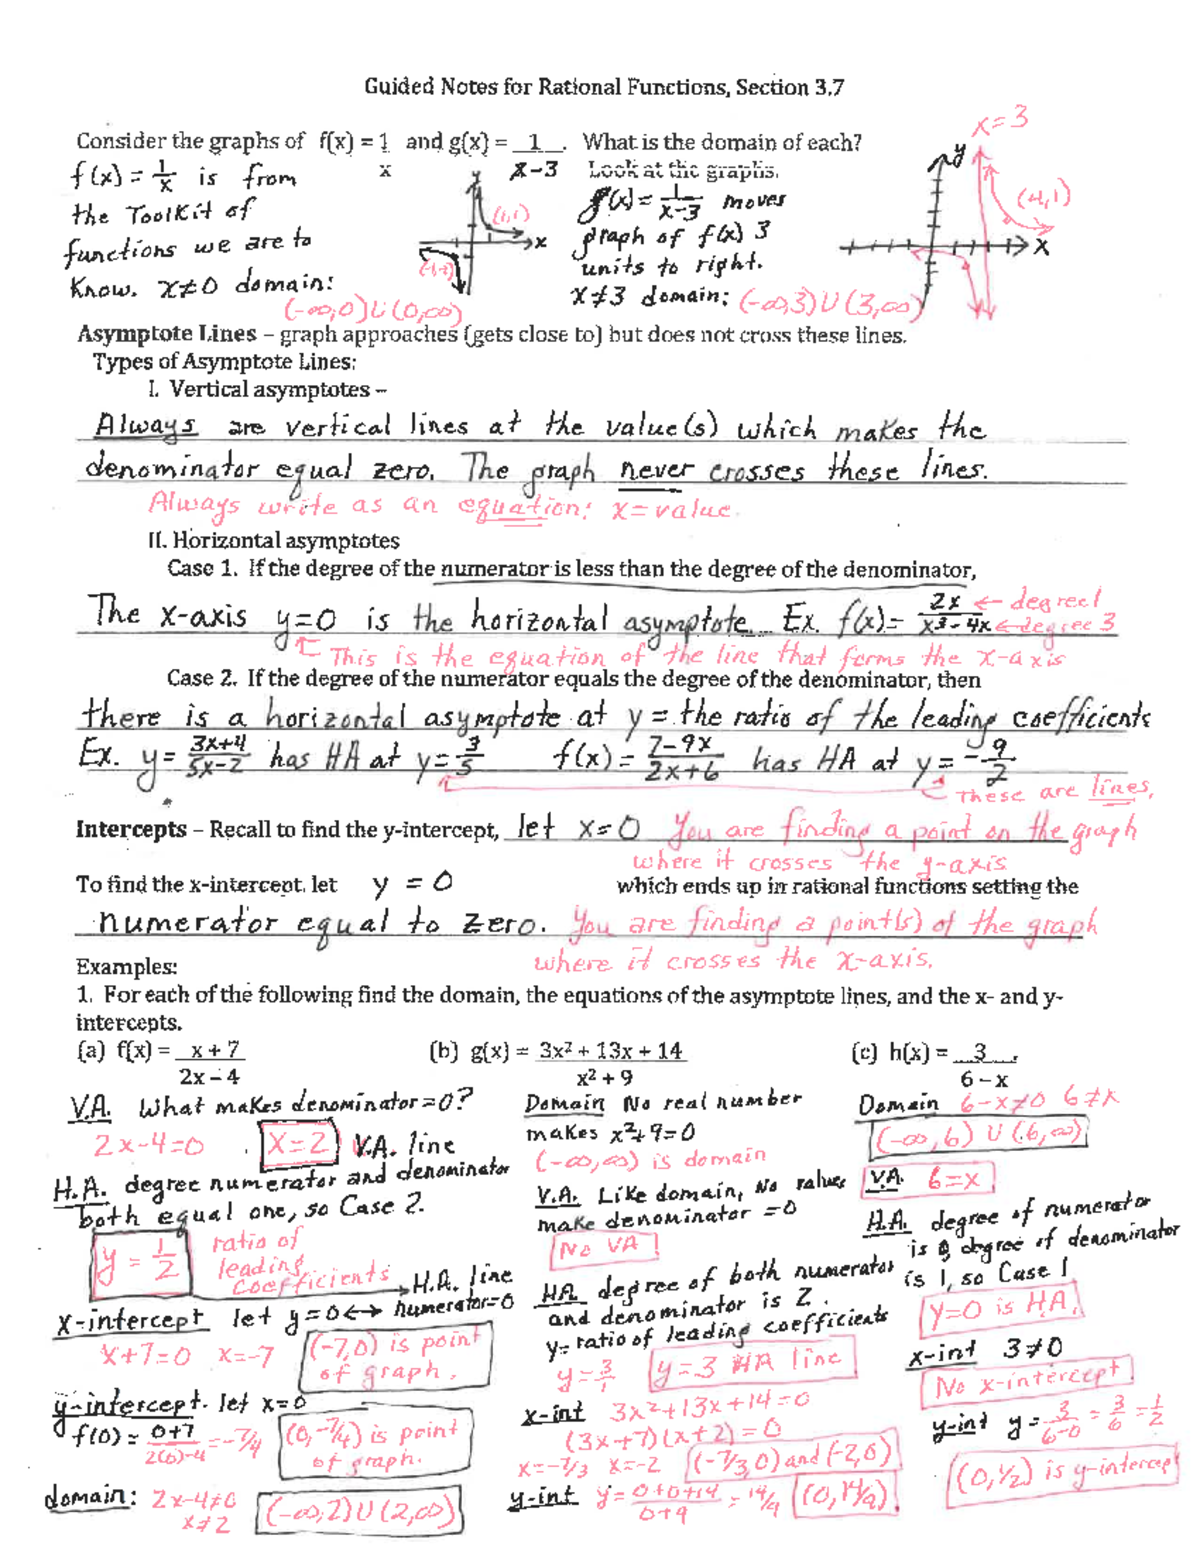 Guided Notes for Rational Functions, Section 3.7
Consider the graphs of f(x) = 1 and g(x) = 1 . What is the domain of each?
x x-3 Look at the graphs.
f(x) = 1/x is from
the Toolkit of
functions we are to
know. x≠0 domain:
(-∞,0)∪(0,∞)
y
(1,1)
x
g(x) = 1/(x-3) moves
graph of f(x) 3
units to right.
x≠3 domain: (-∞,3)∪(3,∞)
x=3
y
(4,1)
x
Asymptote Lines – graph approaches (gets close to) but does not cross these lines.
Types of Asymptote Lines:
I. Vertical asymptotes –
Always are vertical lines at the value(s) which makes the
denominator equal zero. The graph never crosses these lines.
Always write as an equation: x=value.
II. Horizontal asymptotes
Case 1. If the degree of the numerator is less than the degree of the denominator,
The x-axis y=0 is the horizontal asymptote. Ex. f(x)= 2x/(x³-4x) ← degree 1 ← degree 3
↑ This is the equation of the line that forms the x-axis
Case 2. If the degree of the numerator equals the degree of the denominator, then
there is a horizontal asymptote at y = the ratio of the leading coefficients
Ex. y = (3x+4)/(5x-2) has HA at y = 3/5 f(x) = (7-9x)/(2x+6) has HA at y = -9/2
These are lines,
Intercepts – Recall to find the y-intercept, let x=0 You are finding a point on the graph
where it crosses the y-axis
To find the x-intercept, let y = 0 which ends up in rational functions setting the
numerator equal to zero. You are finding a point(s) of the graph
where it crosses the x-axis.
Examples:
1. For each of the following find the domain, the equations of the asymptote lines, and the x- and y-
intercepts.
(a) f(x) = x + 7 (b) g(x) = 3x² + 13x + 14 (c) h(x) = 3 .
2x – 4 x² + 9 6 – x
V.A. What makes denominator=0?
2x-4=0 x=2 V.A. line
H.A. degree numerator and denominator
both equal one, so Case 2.
y = 1/2 ratio of
leading
coefficients → H.A. line
x-intercept let y=0 ↔ numerator=0
x+7=0 x=-7 (-7,0) is point
of graph.
y-intercept. let x=0
f(0) = (0+7)/(2(0)-4) = -7/4 (0,-7/4) is point
of graph.
domain: 2x-4≠0
x≠2 (-∞,2)∪(2,∞)
Domain No real number
makes x²+9=0
(-∞,∞) is domain
V.A. Like domain, no values
make denominator =0
No VA
HA. degree of both numerator
and denominator is 2.
y= ratio of leading coefficients
y=3/1 y=3 HA line
x-int 3x²+13x+14=0
(3x+7)(x+2)=0
x=-7/3 x=-2 (-7/3,0) and (-2,0)
y-int y= (0+0+14)/(0+9) = 14/9 (0,14/9)
Domain 6-x≠0 6≠x
(-∞,6) ∪ (6,∞)
V.A. 6=x
H.A. degree of numerator
is 0, degree of denominator
is 1, so Case 1
y=0 is HA.
x-int 3≠0
No x-intercept
y-int y= 3/(6-0) = 3/6 = 1/2
(0,1/2) is y-intercept